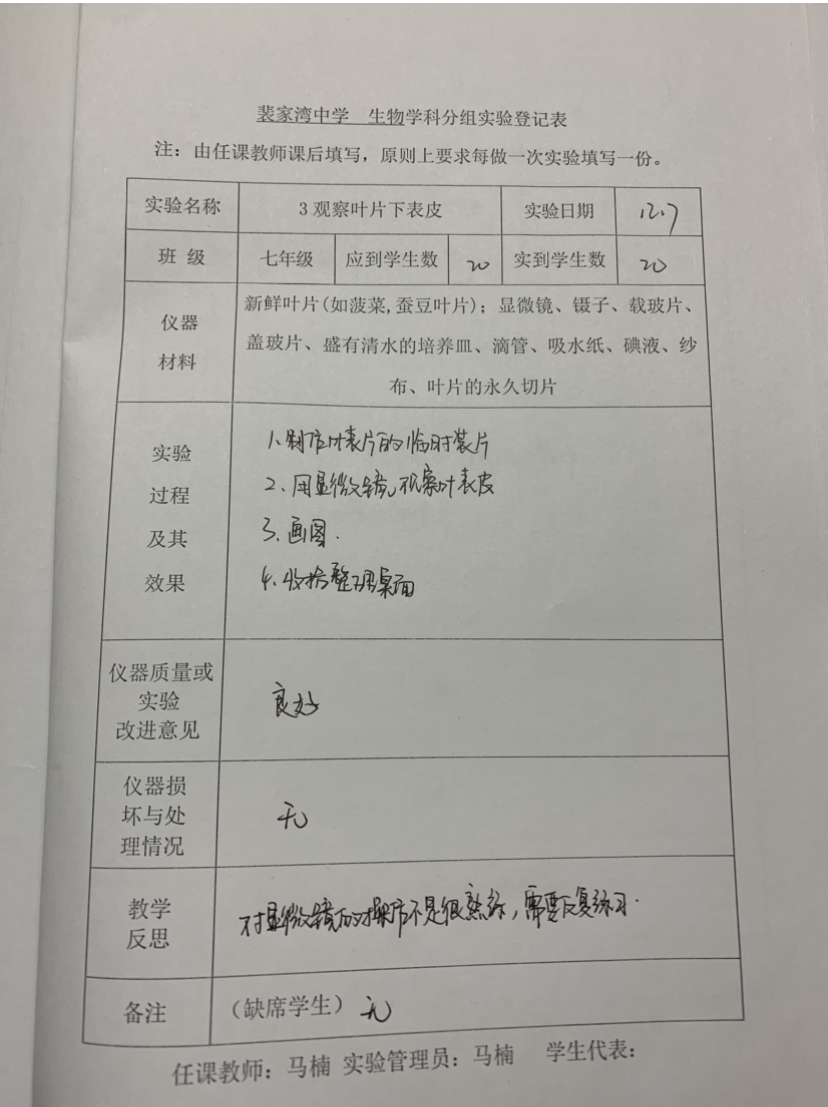 裴家湾中学　生物学科分组实验登记表
注：由任课教师课后填写，原则上要求每做一次实验填写一份。
实验名称 3 观察叶片下表皮 实验日期 12.7
班 级 七年级 应到学生数 20 实到学生数 20
仪器
材料
新鲜叶片(如菠菜,蚕豆叶片)；显微镜、镊子、载玻片、
盖玻片、盛有清水的培养皿、滴管、吸水纸、碘液、纱
布、叶片的永久切片
实验
过程
及其
效果
1、制作叶表片的临时装片
2、用显微镜观察叶表皮
3、画图.
4、收拾整理桌面
仪器质量或
实验
改进意见
良好
仪器损
坏与处
理情况
无
教学
反思
对显微镜的操作不是很熟练，需要反复练习.
备注 （缺席学生）无
任课教师：马楠 实验管理员：马楠 学生代表：